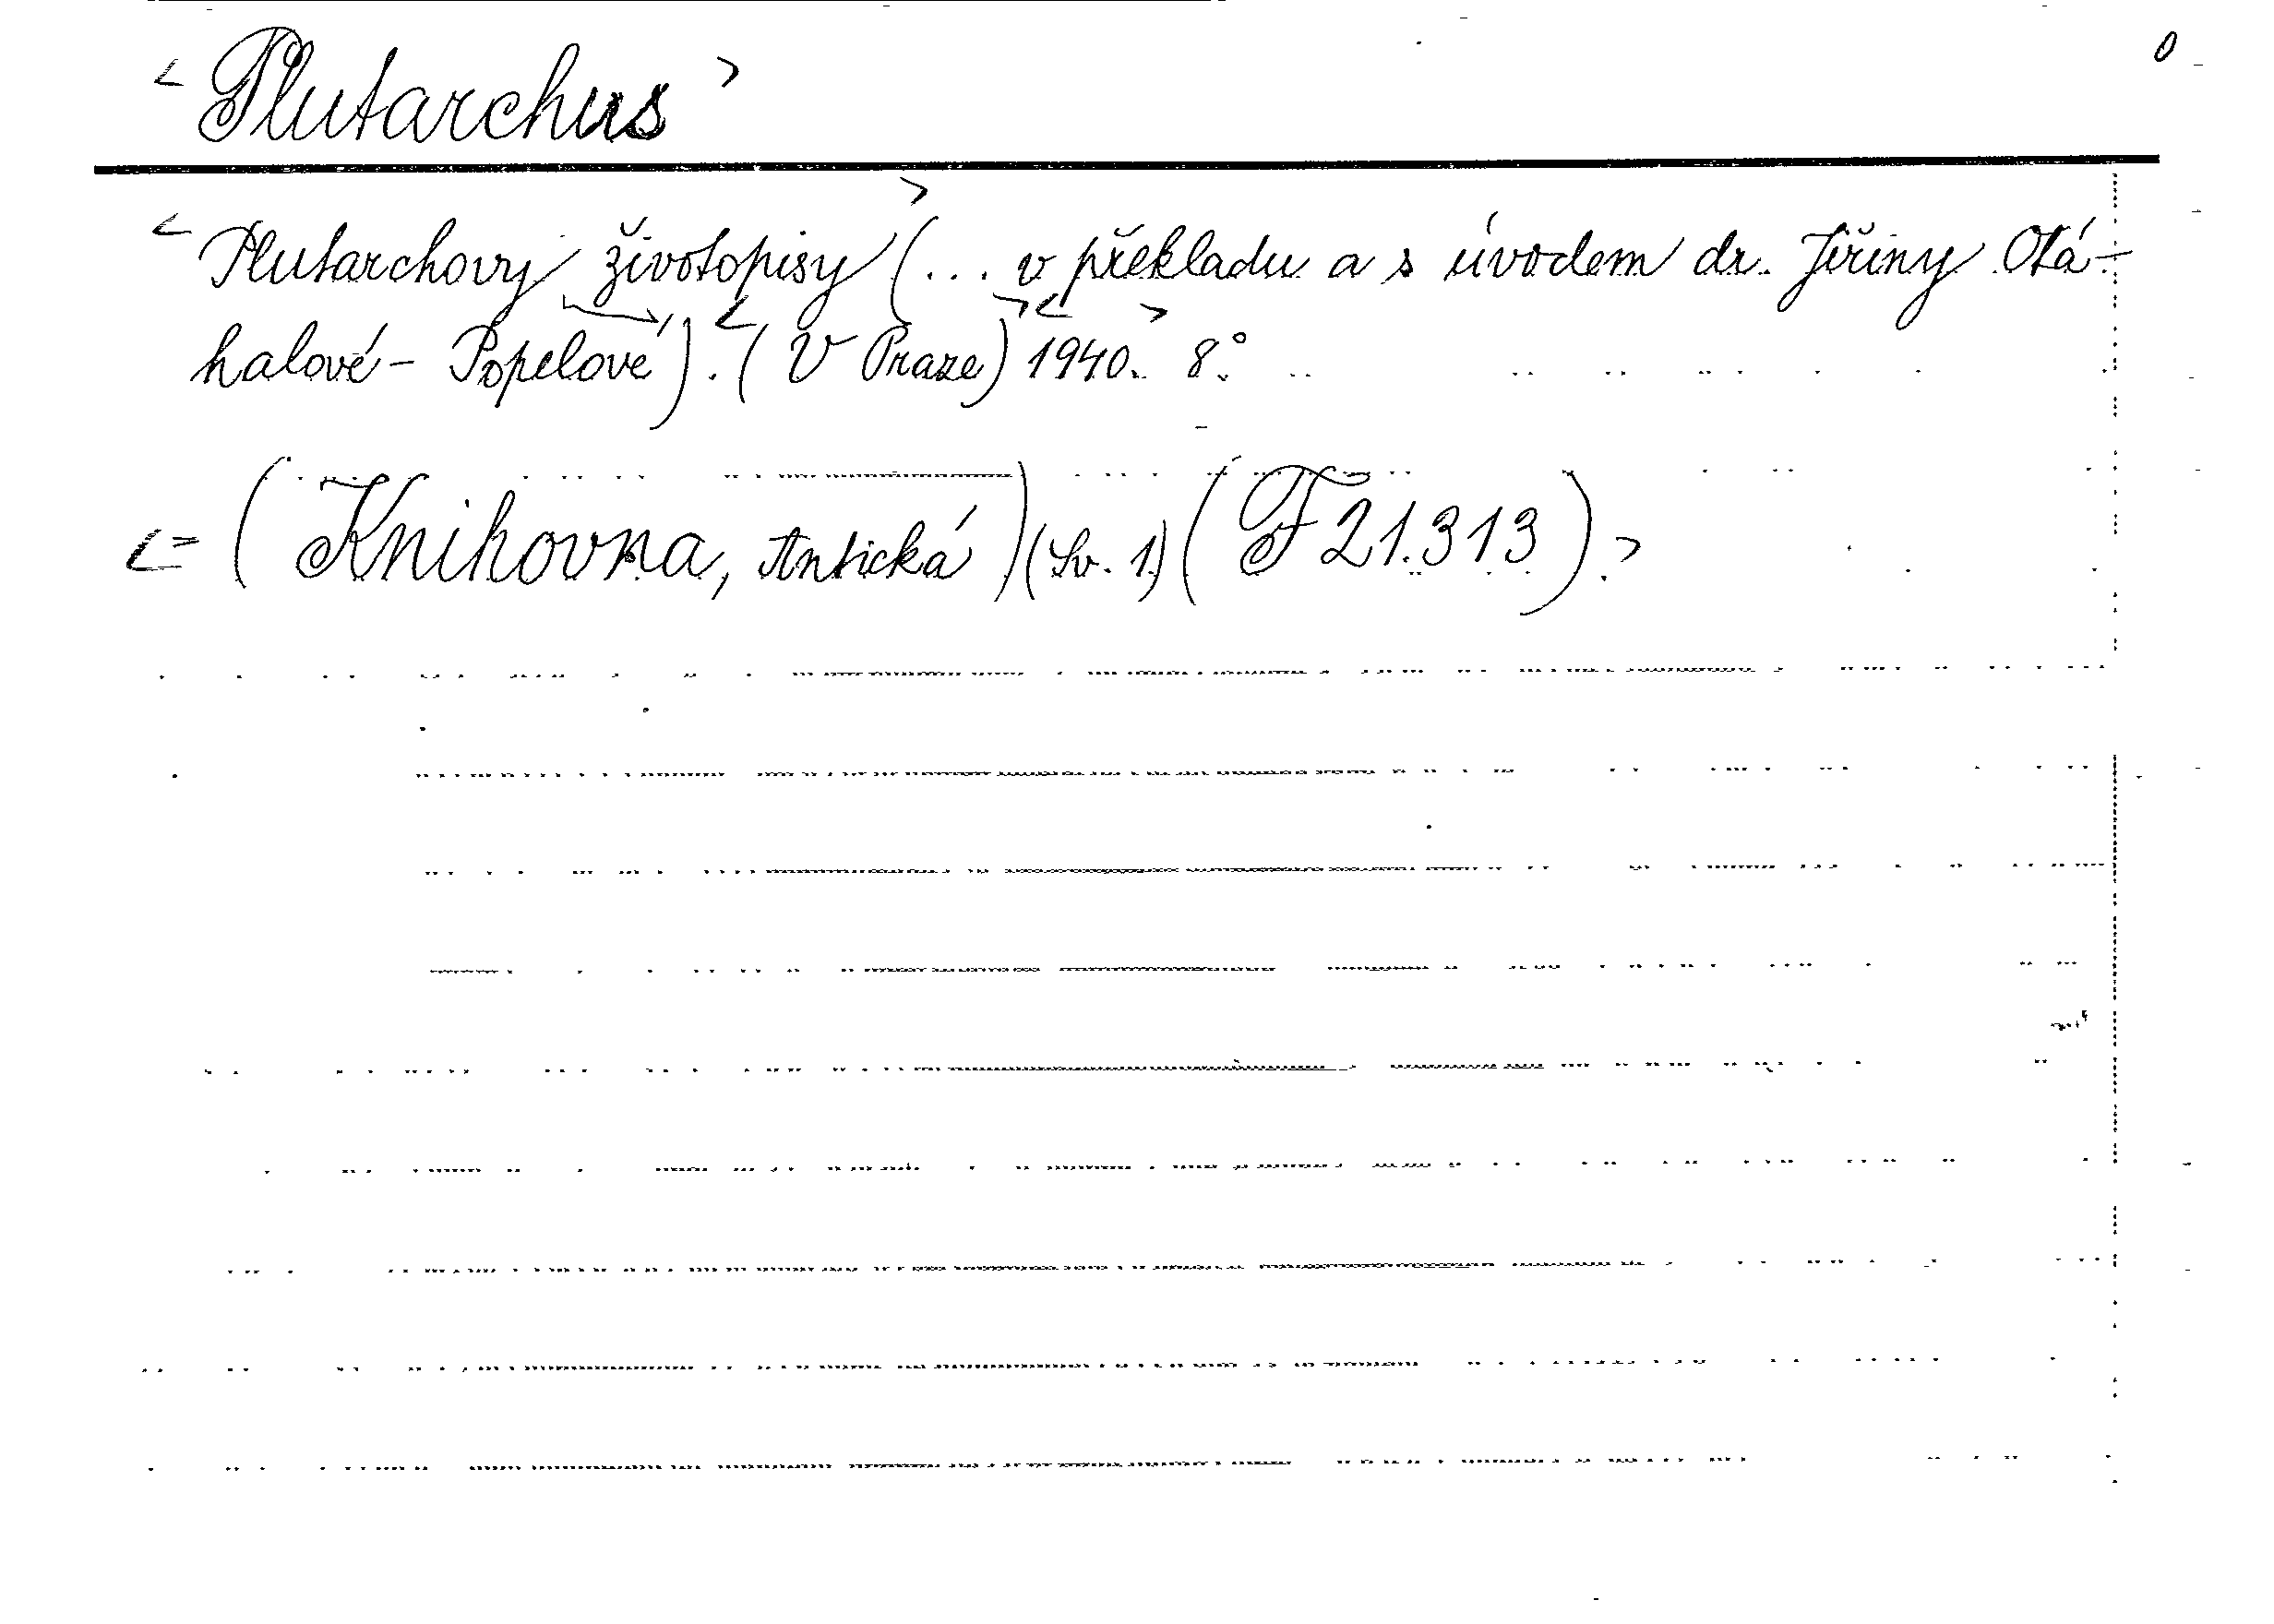 < Plutarchus > 0
< Plutarchovy životopisy > (... v překladu a s úvodem dr. Jiřiny Otá-
halové - Popelové). < (V Praze) > < 1940. > 8°.
< = (Knihovna, Antická) (Sv. 1.) (F 21.313). >